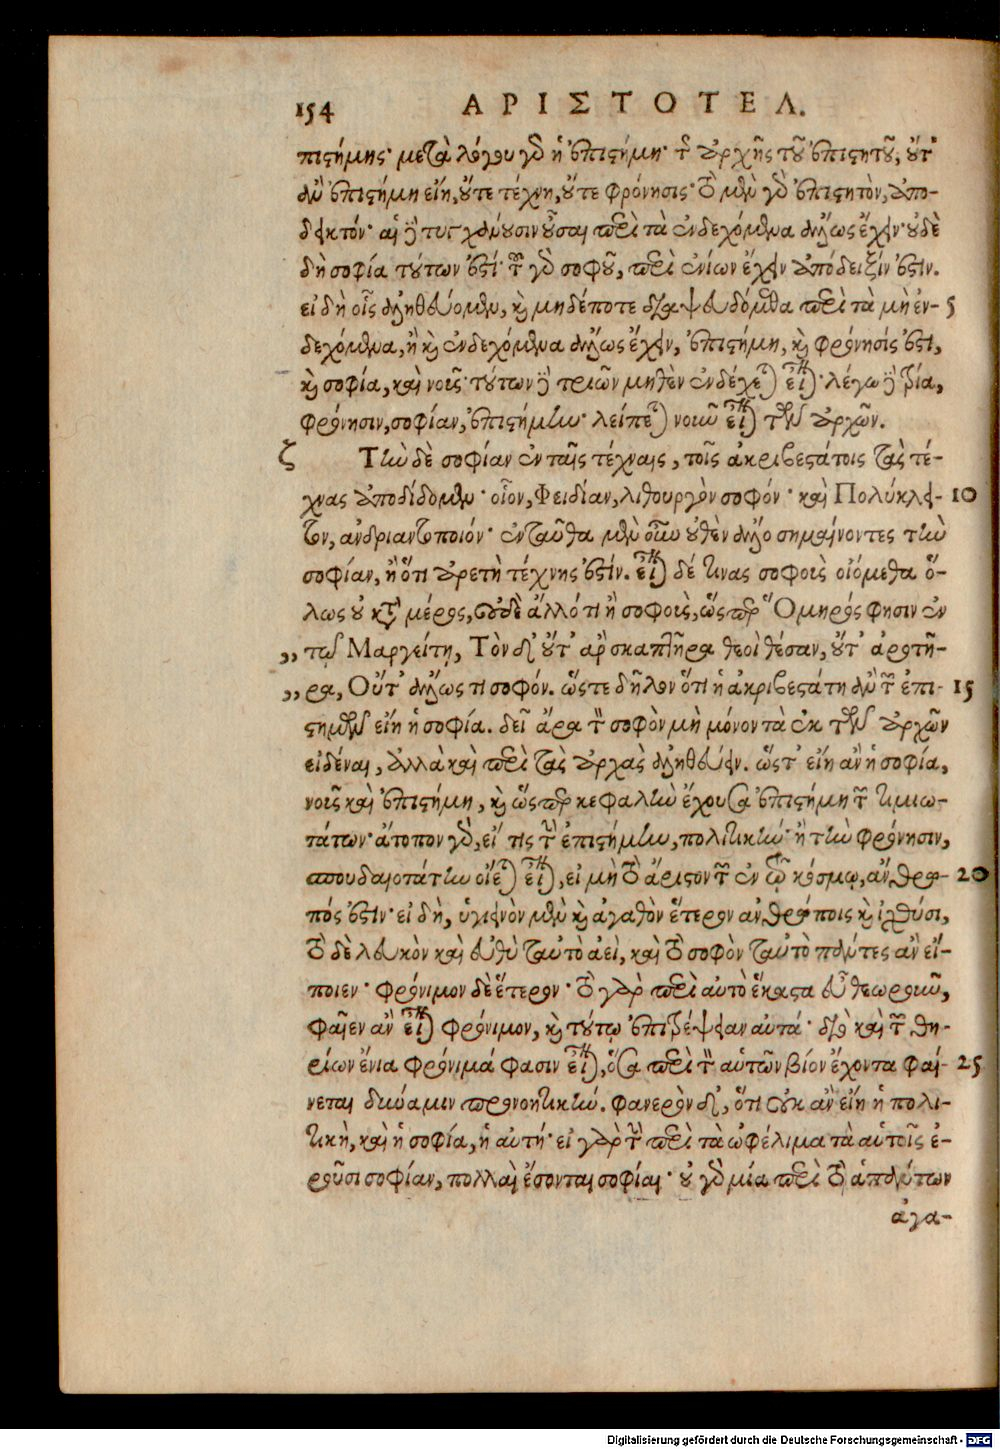 154 ΑΡΙΣΤΟΤΕΛ.
πιστήμης· μετὰ λόγου γὰρ ἡ ἐπιστήμη· τῆς ἀρχῆς τοῦ ἐπιστητοῦ, οὔτ'
ἂν ἐπιστήμη εἴη, οὔτε τέχνη, οὔτε φρόνησις· τὸ μὲν γὰρ ἐπιστητὸν, ἀπο-
δεικτόν· αἱ δὲ τυγχάνουσιν οὖσαι περὶ τὰ ἐνδεχόμενα ἄλλως ἔχειν· οὐδὲ
δὴ σοφία τούτων ἐστί· τοῦ γὰρ σοφοῦ, περὶ ἐνίων ἔχειν ἀπόδειξίν ἐστιν.
εἰ δὴ οἷς ἀληθεύομεν, καὶ μηδέποτε διαψευδόμεθα περὶ τὰ μὴ ἐν- 5
δεχόμενα, ἢ καὶ ἐνδεχόμενα ἄλλως ἔχειν, ἐπιστήμη, καὶ φρόνησίς ἐστι,
καὶ σοφία, καὶ νοῦς· τούτων δὲ τριῶν μηθὲν ἐνδέχεται εἶναι· λέγω δὲ τρία,
φρόνησιν, σοφίαν, ἐπιστήμην· λείπεται νοῦν εἶναι τῶν ἀρχῶν.
ζ Τὴν δὲ σοφίαν ἐν ταῖς τέχναις, τοῖς ἀκριβεστάτοις τὰς τέ-
χνας ἀποδίδομεν· οἷον, Φειδίαν, λιθουργὸν σοφόν· καὶ Πολύκλει- 10
τον, ἀνδριαντοποιόν· ἐνταῦθα μὲν οὖν οὐθὲν ἄλλο σημαίνοντες τὴν
σοφίαν, ἢ ὅτι ἀρετὴ τέχνης ἐστίν. εἶναι δέ τινας σοφοὺς οἰόμεθα ὅ-
λως οὐ κατὰ μέρος, οὐδὲ ἄλλό τι ἢ σοφοὺς, ὥσπερ Ὅμηρός φησιν ἐν
„ τῷ Μαργείτῃ, Τὸν δ' οὔτ' ἂρ σκαπτῆρα θεοὶ θέσαν, οὔτ' ἀροτῆ-
„ ρα, Οὔτ' ἄλλως τι σοφόν. ὥστε δῆλον ὅτι ἡ ἀκριβεστάτη ἂν τῶν ἐπι- 15
στημῶν εἴη ἡ σοφία. δεῖ ἄρα τὸν σοφὸν μὴ μόνον τὰ ἐκ τῶν ἀρχῶν
εἰδέναι, ἀλλὰ καὶ περὶ τὰς ἀρχὰς ἀληθεύειν. ὥστ' εἴη ἂν ἡ σοφία,
νοῦς καὶ ἐπιστήμη, καὶ ὥσπερ κεφαλὴν ἔχουσα ἐπιστήμη τῶν τιμιω-
τάτων· ἄτοπον γὰρ, εἴ τις τὴν ἐπιστήμην, πολιτικὴν· ἢ τὴν φρόνησιν,
σπουδαιοτάτην οἴεται εἶναι, εἰ μὴ τὸ ἄριστον τῶν ἐν τῷ κόσμῳ, ἄνθρω- 20
πός ἐστιν· εἰ δὴ, ὑγιεινὸν μὲν καὶ ἀγαθὸν ἕτερον ἀνθρώποις καὶ ἰχθύσι,
τὸ δὲ λευκὸν καὶ εὐθὺ ταὐτὸ ἀεὶ, καὶ τὸ σοφὸν ταὐτὸ πάντες ἂν εἴ-
ποιεν· φρόνιμον δὲ ἕτερον· τὸ γὰρ περὶ αὐτὸ ἕκαστα εὖ θεωροῦν,
φαῖεν ἂν εἶναι φρόνιμον, καὶ τούτῳ ἐπιτρέψειαν αὐτά· διὸ καὶ τῶν θη-
ρίων ἔνια φρόνιμά φασιν εἶναι, ὅσα περὶ τὸν αὑτῶν βίον ἔχοντα φαί- 25
νεται δύναμιν προνοητικήν. φανερὸν δ', ὅτι οὐκ ἂν εἴη ἡ πολι-
τικὴ, καὶ ἡ σοφία, ἡ αὐτή· εἰ γὰρ τὴν περὶ τὰ ὠφέλιμα τὰ αὑτοῖς ἐ-
ροῦσι σοφίαν, πολλαὶ ἔσονται σοφίαι· οὐ γὰρ μία περὶ τὸ ἁπάντων
ἀγα-
Digitalisierung gefördert durch die Deutsche Forschungsgemeinschaft - DFG